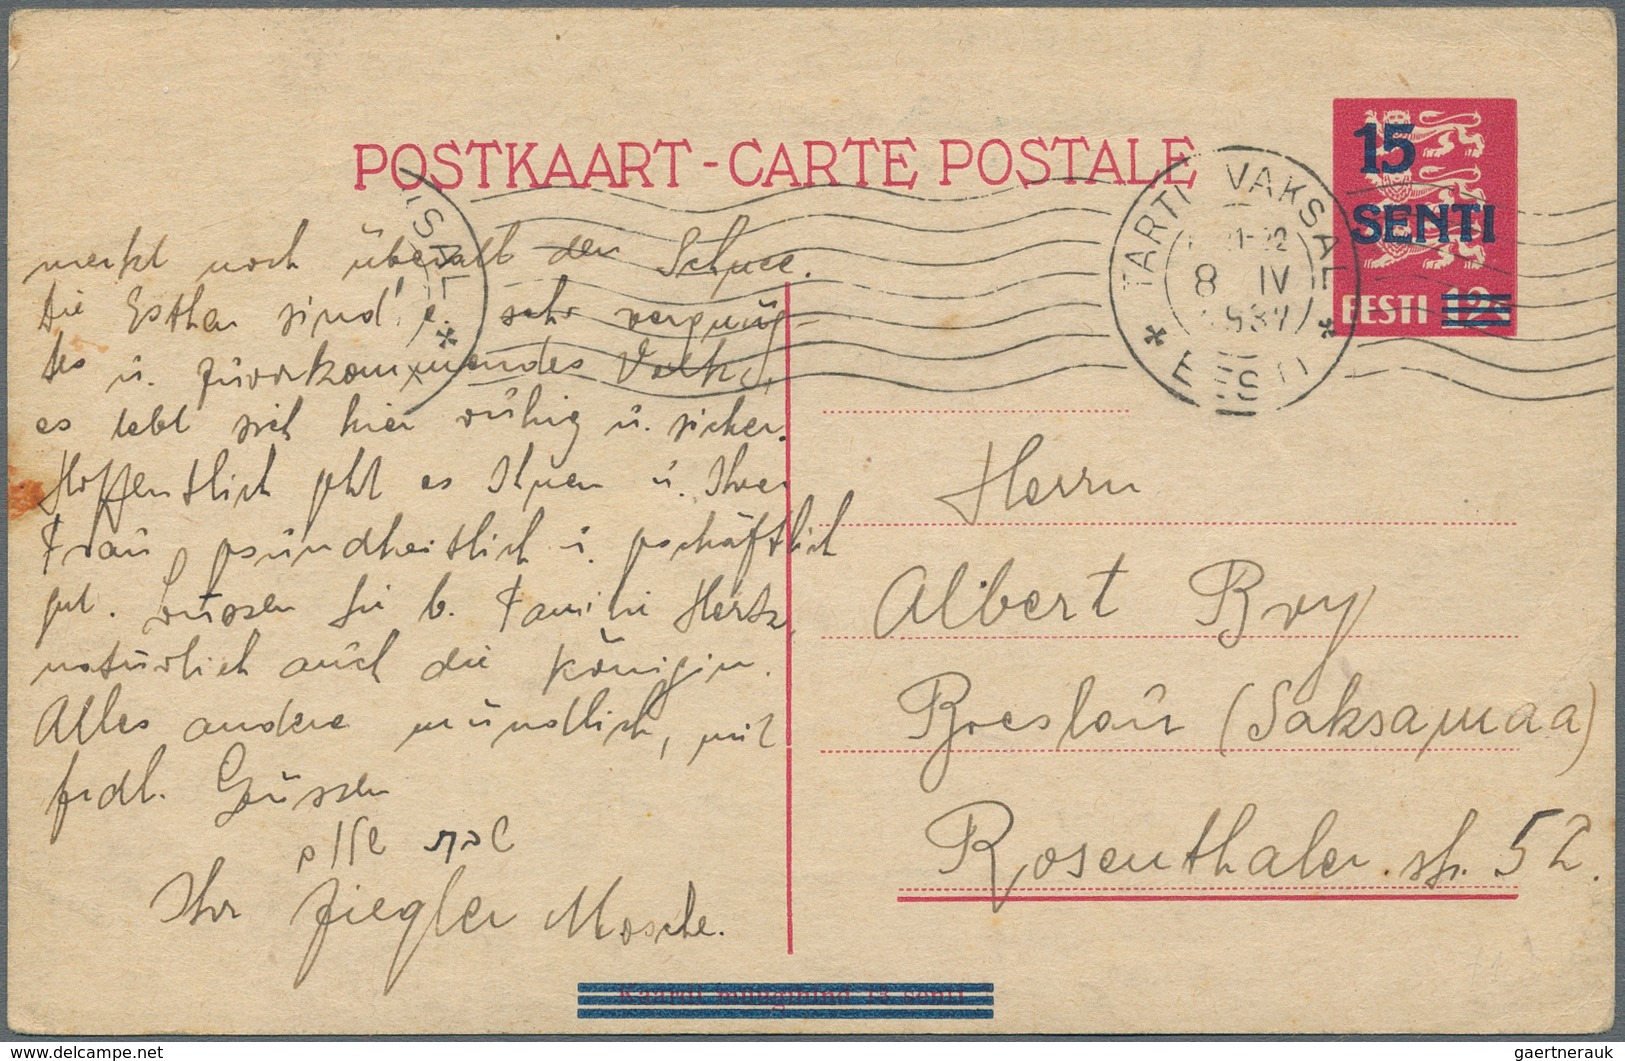 POSTKAART - CARTE POSTALE
15
SENTI
EESTI 12s
TARTU VAKSAL
21-22
8 IV
EESTI
merkt noch überall den Schnee.
Die Esthen sind e. sehr vergnüg-
tes u. zuvorkommendes Volk,
es lebt sich hier ruhig u. sicher.
Hoffentlich geht es Ihnen u. Ihrer
Frau gesundheitlich u. geschäftlich
gut. Grüssen Sie b. Familie Hertz,
natürlich auch die Königin.
Alles andere mündlich, mit
frdl. Grüssen
Ihr Ziegler Mosche.
Herrn
Albert Bry
Breslau (Saksamaa)
Rosenthaler str. 52.
Kaardi müügihind 13 senti
gaertnerauk